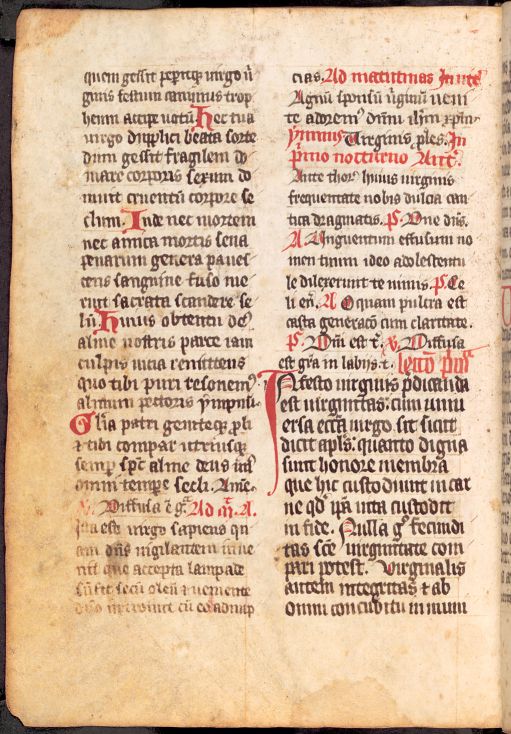 quem gessit perpetisq; virgo ũ
ginis festum canimus trop
heum accipe votũ Hec tua
virgo duplici beata sorte
dum gessit fragilem do
mare corporis sexum do
muit cruentũ corpore se
clum. Inde nec mortem
nec amica mortis seva
penarum genera pauesc
cens sanguine fuso me
ruit sacrata scandere se
lũ. Huius obtentu deꝰ
alme nostris parce iam
culpis vicia remittens
quo tibi puri resonemꝰ
almum pectoris ympnũ.
Gl̃ia patri geniteq; p̃li
⁊ tibi compar utriusq;
semp sp̃c alme deus unꝰ
omni tempe secli. Ame.
℣. Diffusa ẽ gr̃a Ad m̃. A.
Ista est virgo sapiens qu
am dñs vigilantem inve
nit que accepta lampade
sũpsit secũ oleũ ⁊ veniente
dño introiuit cũ eo ad nup
cias. Ad matutinas Inuit̃
Agnũ sponsũ v̓ginũ veni
te adoremꝰ dñm ih̃m xp̃m
ymnus Virginis p̃les. In
primo nocturno Ant̃.
Ante thor̃ huius virginis
frequentate nobis dulcia can
tica dragmatis. P̃. Dñe dñs.
A. Unguentum effusum no
men tuum ideo adolescentu
le dilexerunt te nimis. P̃. Ce
li eñ. A O quam pulcra est
casta generacõ cum claritate.
P̃. Dñi est t̃. ℣. Diffusa
est gr̃a in labijs t. lectõ p̃ma
In festo virginis p̓dicanda
est virginitas: cum univ
ersa ecc̃a virgo sit sicut
dicit apl̃s: quanto digna
sunt honore membra
que hic custodiunt in car
ne qd̓ ip̃a vita custodit
in fide. Nulla gͦ fecundi
tas sc̃e virginitate com
pari potest. Virginalis
autem integritas ⁊ ab
omni concubitu immuni